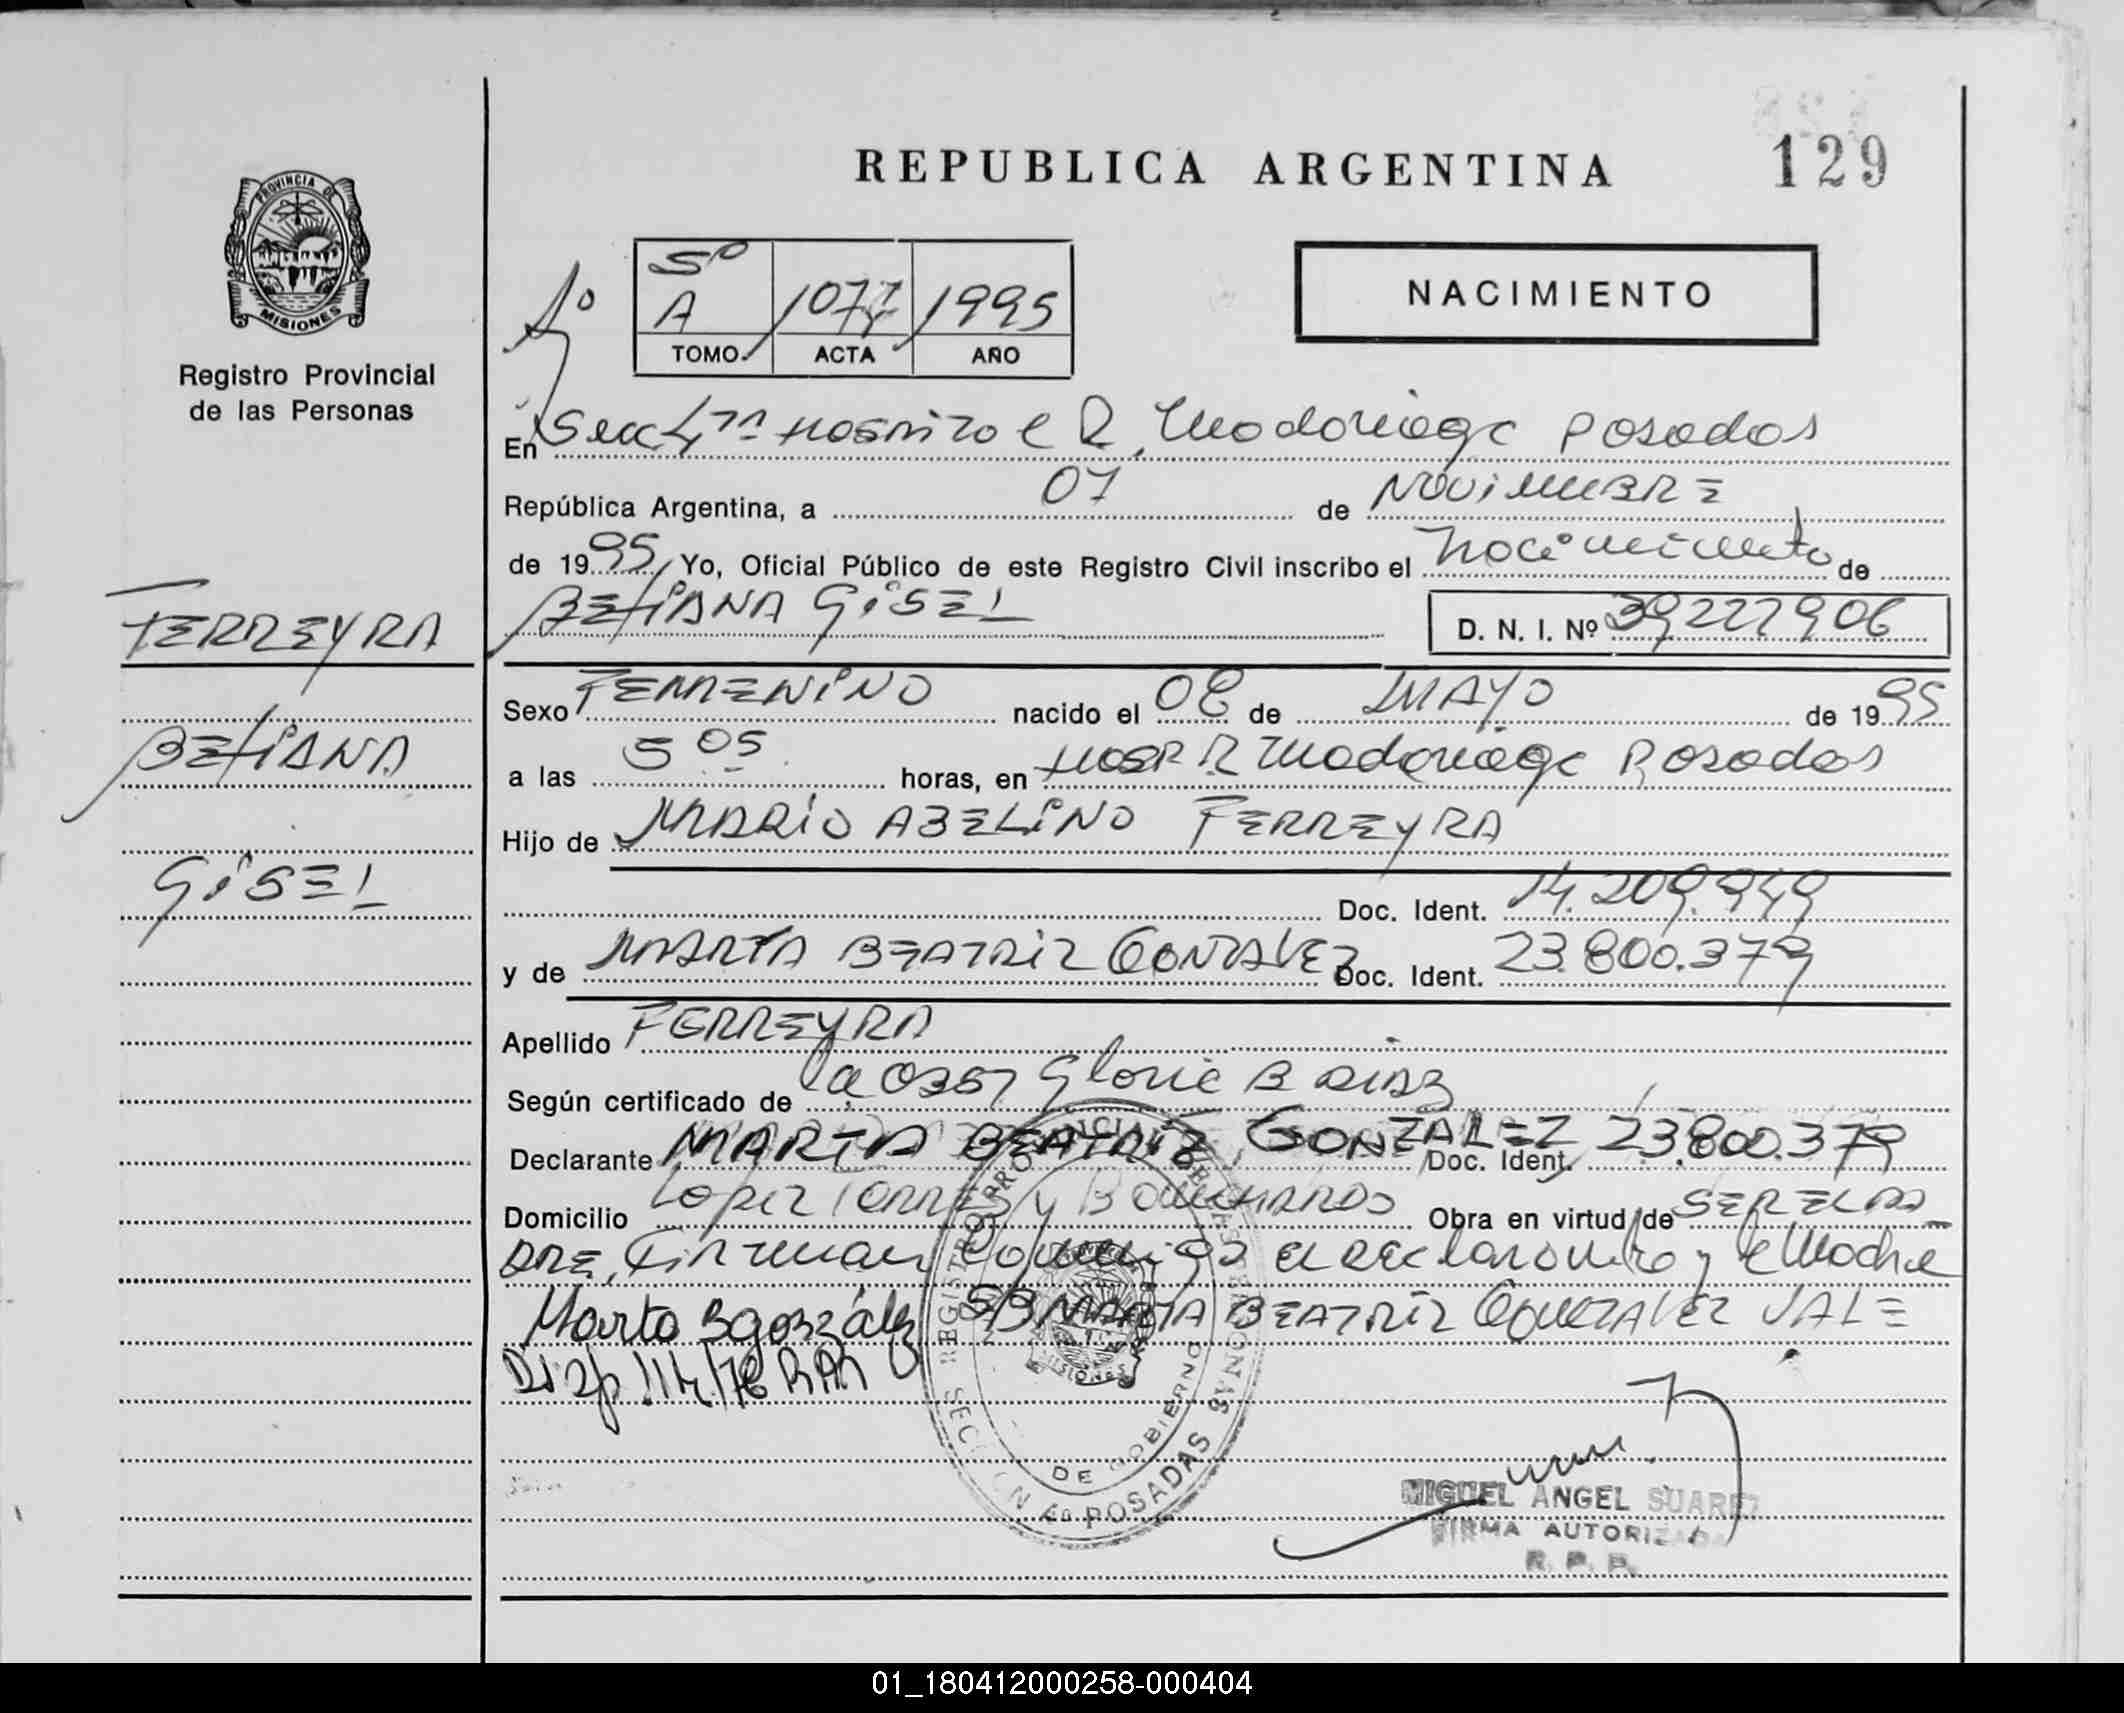 129
REPUBLICA ARGENTINA
PROVINCIA DE
MISIONES
Registro Provincial
de las Personas
5º
A 1077 1995
TOMO ACTA AÑO
NACIMIENTO
En Secc 4ta Hospital R. Madariaga Posadas
República Argentina, a 07 de NOVIEMBRE
de 1995, Yo, Oficial Público de este Registro Civil inscribo el Nacimiento de
BETIANA GISEL
D. N. I. Nº 39227906
FERREYRA
BETIANA
GISEL
Sexo FEMENINO nacido el 08 de MAYO de 1995
a las 5 05 horas, en HOSP R Madariaga Posadas
Hijo de MARIO ABELINO FERREYRA
Doc. Ident. 14.209.949
y de MARTA BEATRIZ GONZALEZ Doc. Ident. 23.800.379
Apellido FERREYRA
Según certificado de la Obst Gloria B DIAZ
Declarante MARTA BEATRIZ GONZALEZ Doc. Ident. 23.800.379
Domicilio LOPEZ TORRES y BOUCHARDO Obra en virtud de SER ELPA-
DRE, Firman Conmigo el declarante y la Madre
Marta B gonzález SB MARTA BEATRIZ GONZALEZ VALE
Disp 114/78 RPP
REGISTRO PROVINCIAL DE LAS PERSONAS
MISIONES
DE GOBIERNO
SECCION 4a POSADAS
MIGUEL ANGEL SUAREZ
FIRMA AUTORIZADA
R. P. P.
01_180412000258-000404